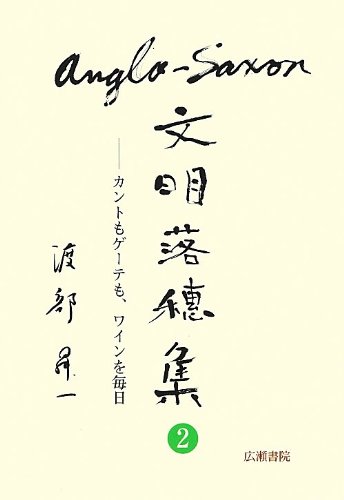 Anglo-Saxon
文明落穂集
――カントもゲーテも、ワインを毎日
渡部昇一
2
広瀬書院